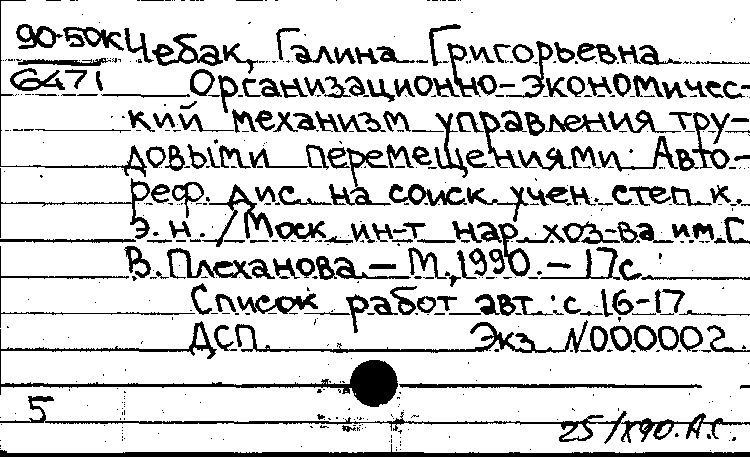 90-50К Чебак, Галина Григорьевна.
6471 Организационно-экономичес-
кий механизм управления тру-
довыми перемещениями: Авто-
реф. дис. на соиск. учен. степ. к.
э. н. / Моск. ин-т нар. хоз-ва им. Г.
В. Плеханова. – М., 1990. – 17 с.
Список работ авт.: с. 16-17.
ДСП. Экз. N000002.
5
25/X90. А.С.